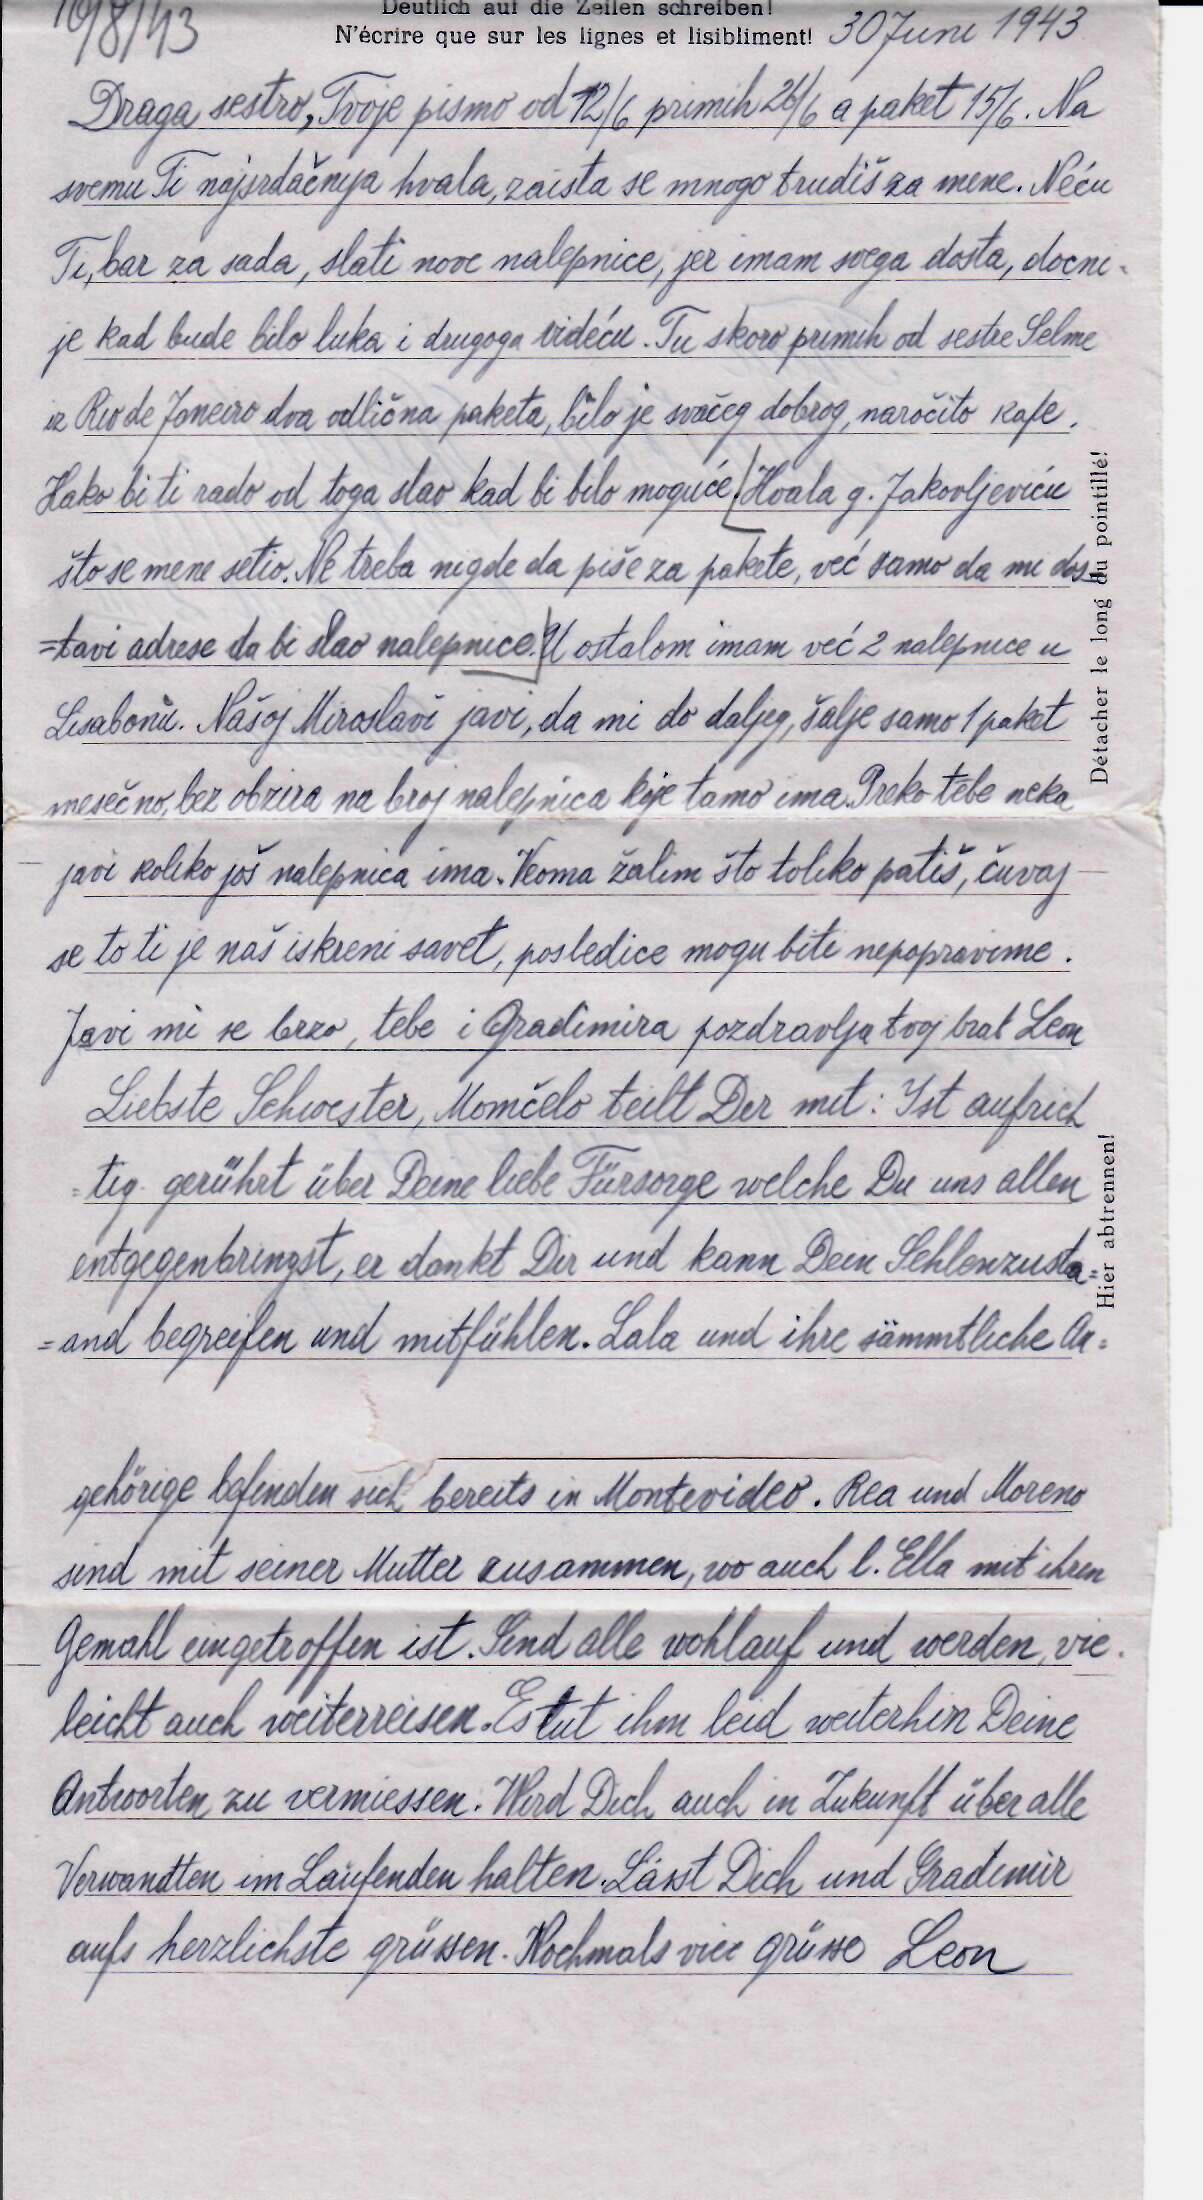 10/8/43
Deutlich auf die Zeilen schreiben!
N'écrire que sur les lignes et lisibliment! 30 Juni 1943
Draga sestro, Tvoje pismo od 12/6 primih 26/6 a paket 15/6. Na
svemu Ti najsrdačnija hvala, zaista se mnogo trudiš za mene. Neću
Ti, bar za sada, slati nove nalepnice, jer imam svega dosta, docni-
je kad bude bilo luka i drugoga videću. Tu skoro primih od sestre Selme
iz Rio de Janeiro dva odlična paketa, bilo je svačeg dobrog, naročito kafe.
Kako bi ti rado od toga slao kad bi bilo moguće. Hvala g. Jakovljeviću
što se mene setio. Ne treba nigde da piše za pakete, već samo da mi dos-
=tavi adrese da bi slao nalepnice. U ostalom imam već 2 nalepnice u
Lisabonu. Našoj Miroslavi javi, da mi do daljeg, šalje samo 1 paket
mesečno, bez obzira na broj nalepnica koje tamo ima. Preko tebe neka
javi koliko još nalepnica ima. Veoma žalim što toliko patiš, čuvaj
se to ti je naš iskreni savet, posledice mogu biti nepopravime.
Javi mi se brzo, tebe i Gradimira pozdravlja tvoj brat Leon
Liebste Schwester, Momčelo teilt Dir mit: Ist aufrich
=tig gerührt über Deine liebe Fürsorge welche Du uns allen
entgegenbringst, er dankt Dir und kann Dein Sehlenzusta=
=and begreifen und mitfühlen. Lala und ihre sämmtliche An=
gehörige befinden sich bereits in Montevideo. Rea und Moreno
sind mit seiner Mutter zusammen, wo auch l. Ella mit ihren
Gemahl eingetroffen ist. Sind alle wohlauf und werden, vie-
leicht auch weiterreisen. Es tut ihm leid weiterhin Deine
Antworten zu vermiessen. Wird Dich auch in Zukunft über alle
Verwandten im Laufenden halten. Lässt Dich und Gradimir
aufs herzlichste grüssen. Nochmals viee grüsse Leon
Détacher le long du pointillé!
Hier abtrennen!